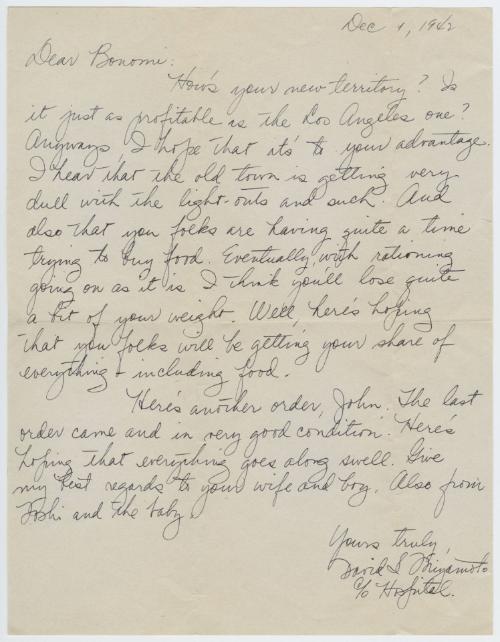 Dec 4, 1942
Dear Bonomi:
How's your new territory? Is
it just as profitable as the Los Angeles one?
Anyways I hope that it's to your advantage.
I hear that the old town is getting very
dull with the light-outs and such. And
also that you folks are having quite a time
trying to buy food. Eventually, with rationing
going on as it is I think you'll lose quite
a bit of your weight. Well, here's hoping
that you folks will be getting your share of
everything - including food.
Here's another order, John. The last
order came and in very good condition. Here's
hoping that everything goes along swell. Give
my best regards to your wife and boy. Also from
Toshi and the baby.
Yours truly,
David S Miyamoto
c/o Hospital.